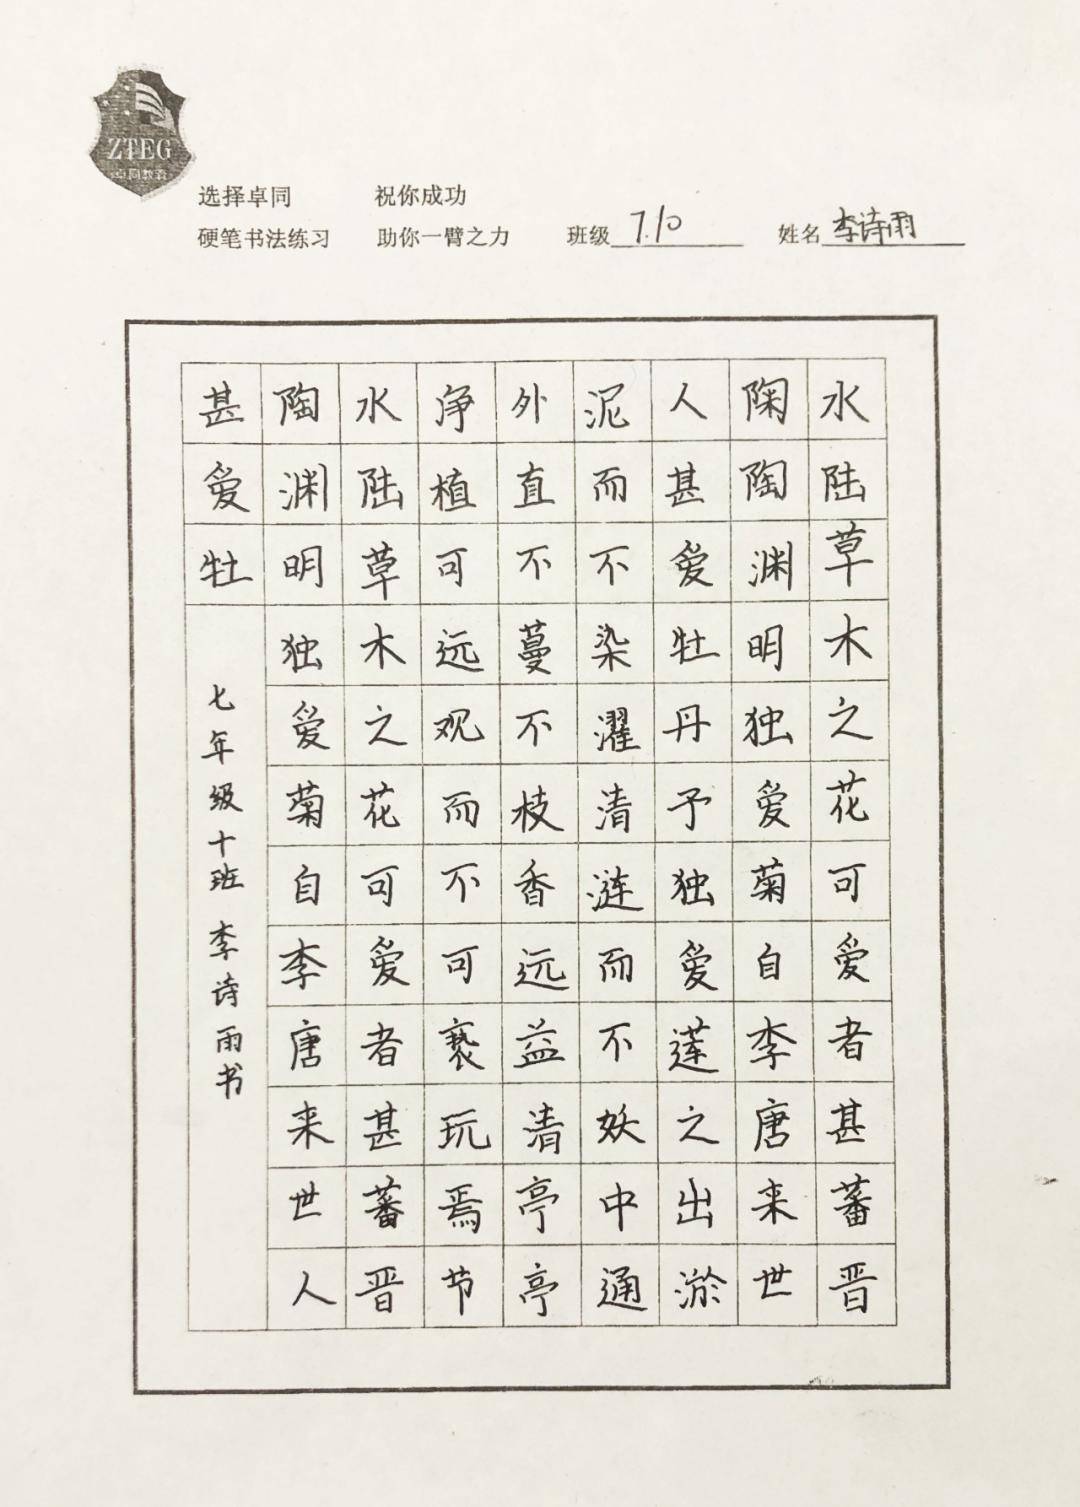 ZTEG
卓同教育
选择卓同 祝你成功
硬笔书法练习 助你一臂之力 班级 7.10 姓名 李诗雨
水陆草木之花可爱者甚蕃晋
陱陶渊明独爱菊自李唐来世
人甚爱牡丹予独爱莲之出淤
泥而不染濯清涟而不妖中通
外直不蔓不枝香远益清亭亭
净植可远观而不可亵玩焉节
水陆草木之花可爱者甚蕃晋
陶渊明独爱菊自李唐来世人
甚爱牡
七年级十班 李诗雨书